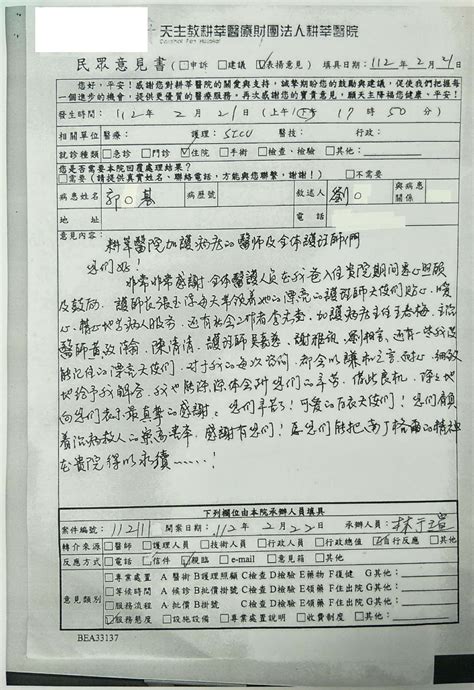 天主教耕莘醫療財團法人耕莘醫院
Cardinal Tien Hospital
民眾意見書(□申訴 □建議 ☑表揚意見) 填具日期:112年2月21日
您好,平安!感謝您對耕莘醫院的關愛與支持,誠摯期盼您的鼓勵與建議,促使我們把握每
一個進步的機會,提供更優質的醫療服務,再次感謝您的寶貴意見,願天主降福您健康、平安!
發生時間:112年2月21日(上午/下午 17時50分)
相關單位 醫療: 護理:SICU 醫技: 行政:
就診種類 □急診 □門診 ☑住院 □手術 □檢查、檢驗 □其他:
您是否需要本院回覆處理結果?
□需要(請提供真實姓名、聯絡電話,方能與您聯繫,謝謝!) □不需要
病患姓名 郭○基 病歷號 敘述人 劉○ 與病患關係
地址 電話
意見內容:
耕莘醫院加護病房的醫師及全体護理師們
您們好!
非常非常感謝全体醫護人員在我爸入住貴院期間悉心照顧
及救治。護師長張玉
心、精心地為病人服務,還有社會工作者李
醫師黃致翰、陳清清、護理師吳 、謝雅琪、劉 、還有一些我沒
能記住的漂亮天使們,對于我的每次咨詢,都会以謙和之言耐心、細致
地給予我解答,我也能深深体会到您們的辛苦。借此良机,除之地
向您們表示最真摯的感謝。您們辛苦了!可愛的白衣天使們!您們肩負
着治病救人的崇高 ,感謝有您們!愿您們能把南丁格爾的精神
在貴院得以永續……!
下列欄位由本院承辦人員填具
案件編號:11211 開案日期:112年2月22日 承辦人員:林于瑄
轉介來源 □醫師 □護理人員 □技術人員 □行政人員 □行政總值 ☑自行反應 □其他:
反應方式 □電話 □信件 ☑親臨 □e-mail □意見箱 □其他:
意見類別
□專業處置 A醫術 B護理照顧 C檢查 D檢驗 E藥物 F復健 G其他:
□等候時間 A候診 B批價掛號 C檢查 D檢驗 E領藥 F住出院 G其他:
□服務流程 A批價 B掛號 C檢查 D檢驗 E領藥 F住出院 G其他:
☑服務態度 □設施設備 □專業處置說明 □收費制度 □其他:
BEA33137